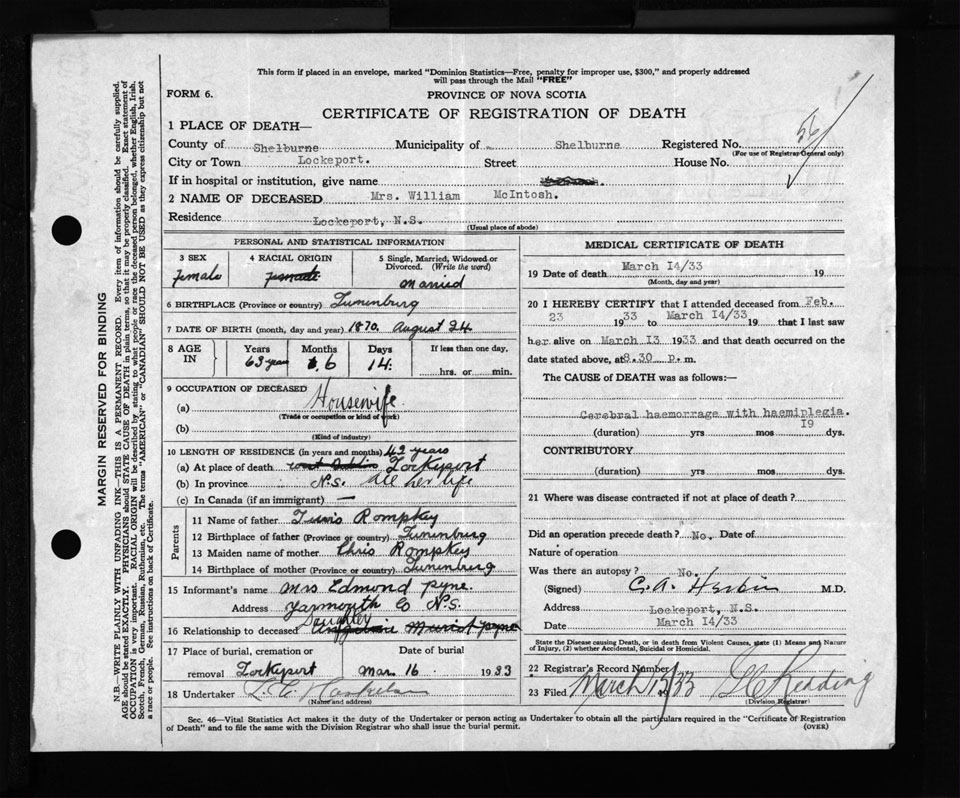 This form if placed in an envelope, marked "Dominion Statistics—Free, penalty for improper use, $300," and properly addressed
will pass through the Mail "FREE"
FORM 6.
PROVINCE OF NOVA SCOTIA
CERTIFICATE OF REGISTRATION OF DEATH
1 PLACE OF DEATH—
County of Shelburne Municipality of Shelburne Registered No. 56
(For use of Registrar General only)
City or Town Lockeport. Street House No.
If in hospital or institution, give name
2 NAME OF DECEASED Mrs. William McIntosh.
Residence Lockeport, N.S.
(Usual place of abode)
PERSONAL AND STATISTICAL INFORMATION
3 SEX 4 RACIAL ORIGIN 5 Single, Married, Widowed or
Divorced. (Write the word)
Female Married
6 BIRTHPLACE (Province or country) Lunenburg
7 DATE OF BIRTH (month, day and year) 1870, August 24
8 AGE IN Years Months Days If less than one day,
63 years 6 14 hrs. or min.
9 OCCUPATION OF DECEASED
(a) Housewife
(Trade or occupation or kind of work)
(b)
(Kind of industry)
10 LENGTH OF RESIDENCE (in years and months) 42 years
(a) At place of death Lockeport
(b) In province N.S. All her life
(c) In Canada (if an immigrant) —
Parents
11 Name of father Rompkey
12 Birthplace of father (Province or country) Lunenburg
13 Maiden name of mother Chris Rompkey
14 Birthplace of mother (Province or country) Lunenburg
15 Informant's name Mrs Edmond Pyne
Address Yarmouth Co N.S.
16 Relationship to deceased Daughter
17 Place of burial, cremation or Date of burial
removal Lockeport Mar. 16 1933
18 Undertaker
(Name and address)
MEDICAL CERTIFICATE OF DEATH
19 Date of death March I4/33 19
(Month, day and year)
20 I HEREBY CERTIFY that I attended deceased from Feb.
23 1933 to March I4/33 19 that I last saw
her alive on March I3 1933 and that death occurred on the
date stated above, at 8.30 p. m.
The CAUSE of DEATH was as follows:—
Cerebral haemorrage with haemiplegia.
(duration) yrs mos I9 dys.
CONTRIBUTORY
(duration) yrs. mos. dys.
21 Where was disease contracted if not at place of death?
Did an operation precede death? No. Date of
Nature of operation
Was there an autopsy? No.
(Signed) C.A. M.D.
Address Lockeport, N.S.
Date March I4/33
State the Disease causing Death, or in death from Violent Causes, state (1) Means and Nature
of Injury, (2) whether Accidental, Suicidal or Homicidal.
22 Registrar's Record Number
23 Filed March 15/33 Redding
(Division Registrar)
Sec. 46—Vital Statistics Act makes it the duty of the Undertaker or person acting as Undertaker to obtain all the particulars required in the "Certificate of Registration
of Death" and to file the same with the Division Registrar who shall issue the burial permit. (OVER)
MARGIN RESERVED FOR BINDING
N.B.—WRITE PLAINLY WITH UNFADING INK—THIS IS A PERMANENT RECORD. Every item of information should be carefully supplied.
AGE should be stated EXACTLY. PHYSICIANS should STATE CAUSE OF DEATH in plain terms, so that it may be properly classified. Exact statement of
OCCUPATION is very important. RACIAL ORIGIN will be described by stating to what people or race the deceased person belonged, whether English, Irish,
Scotch, French, German, Russian, Ruthenian, etc. The terms "AMERICAN" or "CANADIAN" SHOULD NOT BE USED as they express citizenship but not
a race or people. See instructions on back of Certificate.